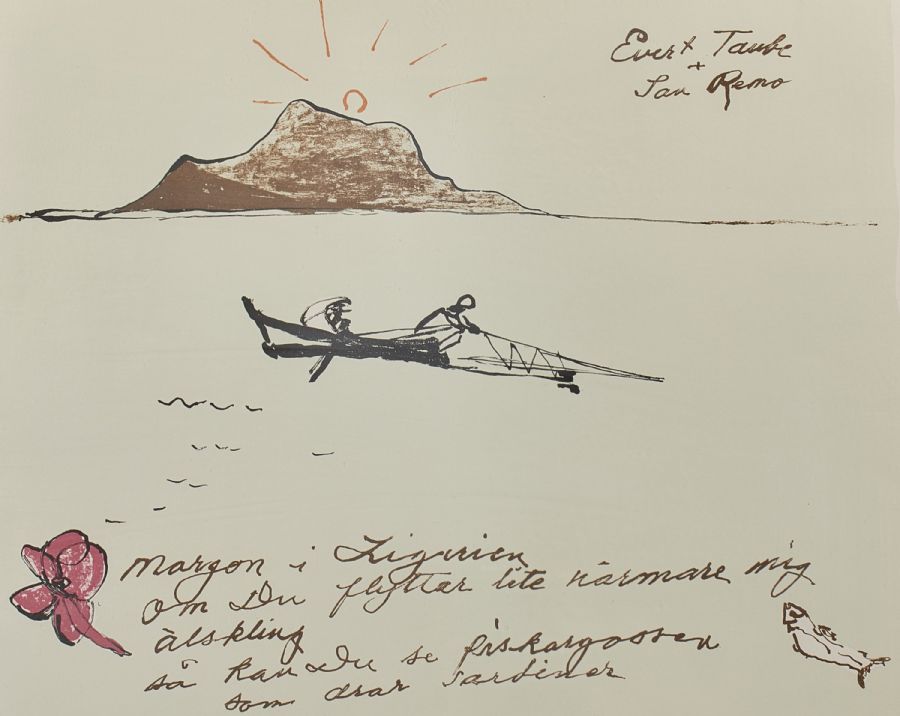 Evert Taube
+
San Remo
Morgon i Ligurien
om Du flyttar lite närmare mig
älskling
så kan Du se fiskargossen
som drar sardiner